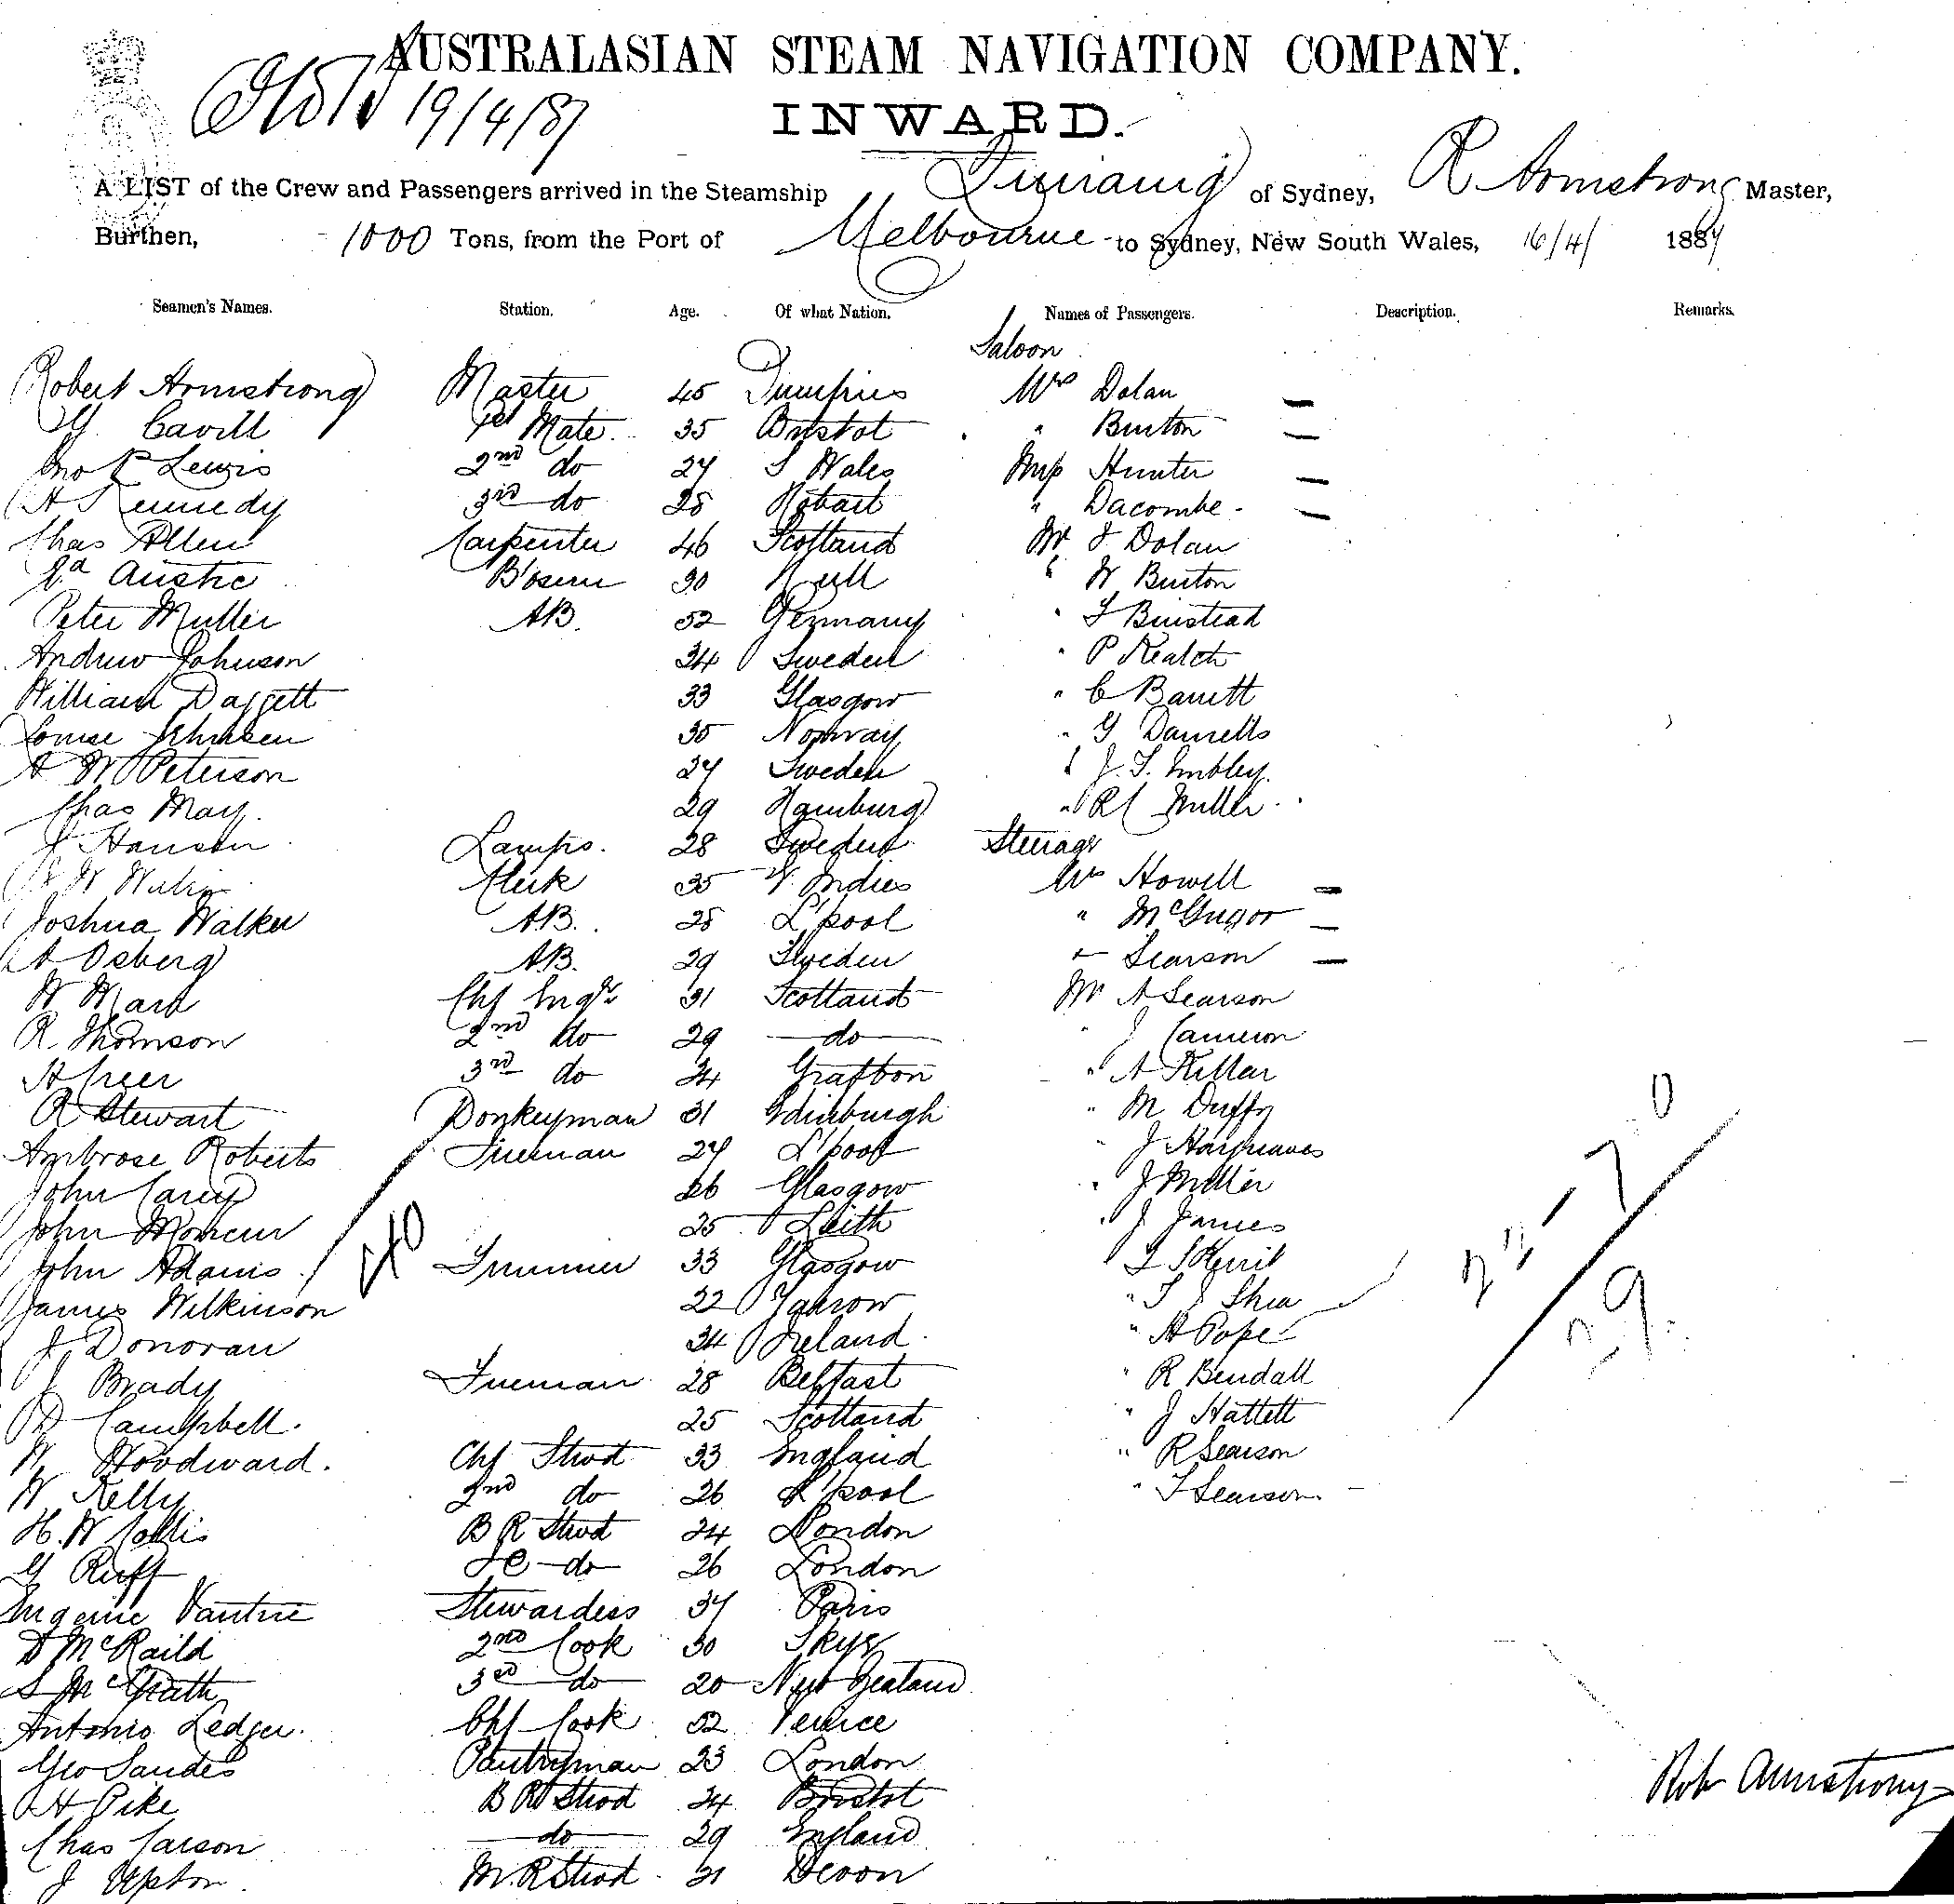 AUSTRALASIAN STEAM NAVIGATION COMPANY.
19/4/87
INWARD.
A LIST of the Crew and Passengers arrived in the Steamship of Sydney, R Armstrong Master,
Burthen, 1000 Tons, from the Port of Melbourne to Sydney, New South Wales, 16/4/ 1887
Seamen's Names. Station. Age. Of what Nation. Names of Passengers. Description. Remarks.
Saloon
Robert Armstrong Master 45 Dumfries Mrs Dolan
Cavill 1st Mate 35 Bristol " Burton
Jno P Lewis 2nd do 27 S Wales Miss Hunter
A Kennedy 3rd do 28 Hobart " Dacombe
Chas Allen Carpenter 46 Scotland Mr J Dolan
B'osun 30 Hull " W Burton
Peter Muller AB 52 Germany " Binstead
Andrew Johnson 34 Sweden " P
William Daggett 33 Glasgow " C Barrett
35 Norway " G Daniells
A W Peterson 27 Sweden " J.S. Embley
Chas May 29 Hamburg " Miller
J Hansen Lamps. 28 Sweden Steerage
Clerk 35 W. Indies Mrs Howell
Joshua Walker AB. 28 L'pool " McGregor
A Osberg AB. 29 Sweden " Searson
W Ward Chf Engr 31 Scotland Mr A Searson
R. Thomson 2nd do 29 do " J Cameron
A Greer 3rd do 24 Grafton " A Kellar
R Stewart Donkeyman 31 Edinburgh " M Duffy
Ambrose Roberts Fireman 27 L'pool " J Hargreaves
John Carey 26 Glasgow " J Miller
John 25 Leith " J James
John Adams Trimmer 33 Glasgow
James Wilkinson 22 Yarrow " Shea
J Donovan 24 Ireland " A Pope
J Brady Fireman 28 Belfast " R Bendall
D Campbell. 25 Scotland " J Hattett
W Woodward. Chf Stwd 33 England " R Searson
W Kelly 2nd do 26 L'pool " F Searson
H. W Collis B R Stwd 24 London
G Ruff do 26 London
Eugenie Stewardess 37 Paris
D McRaild 2nd Cook 30 Skye
S McGrath 3rd do 20 New Zealand
Antonio Ledger. Chf Cook 52 Venice
Geo Sandes Pantryman 23 London
A H Pike B R Stwd 24 Bristol
Chas Carson do 29 England
J Upton M. R Stwd 21 Devon
Rob Armstrong